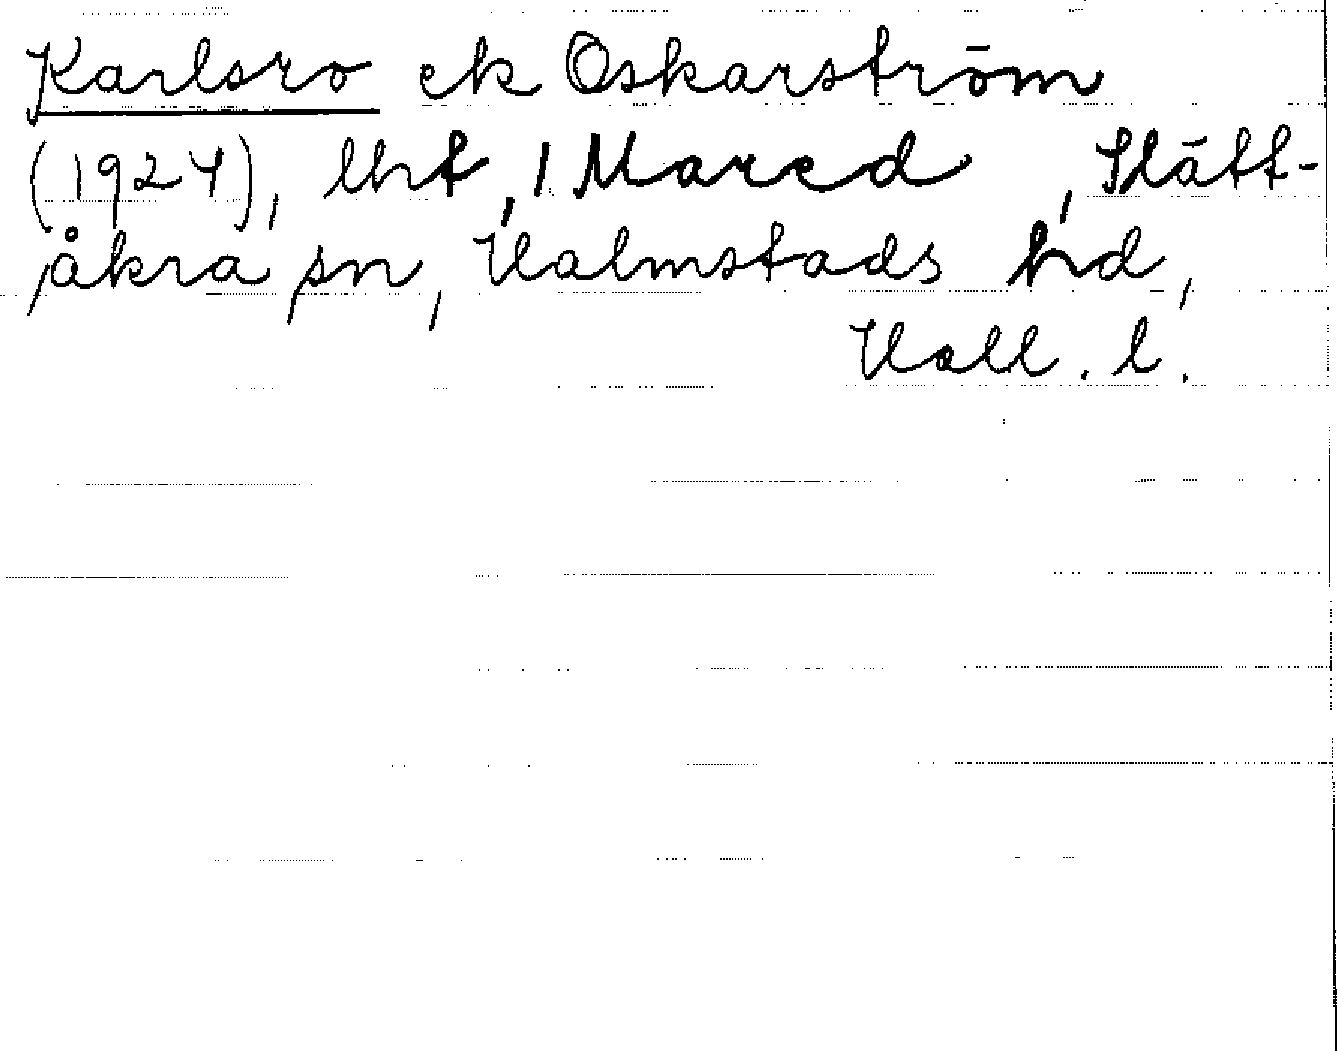 Karlsro ek Oskarström
(1924), lht, 1 Mared, Slätt-
åkra sn, Halmstads hd,
Hall. l.